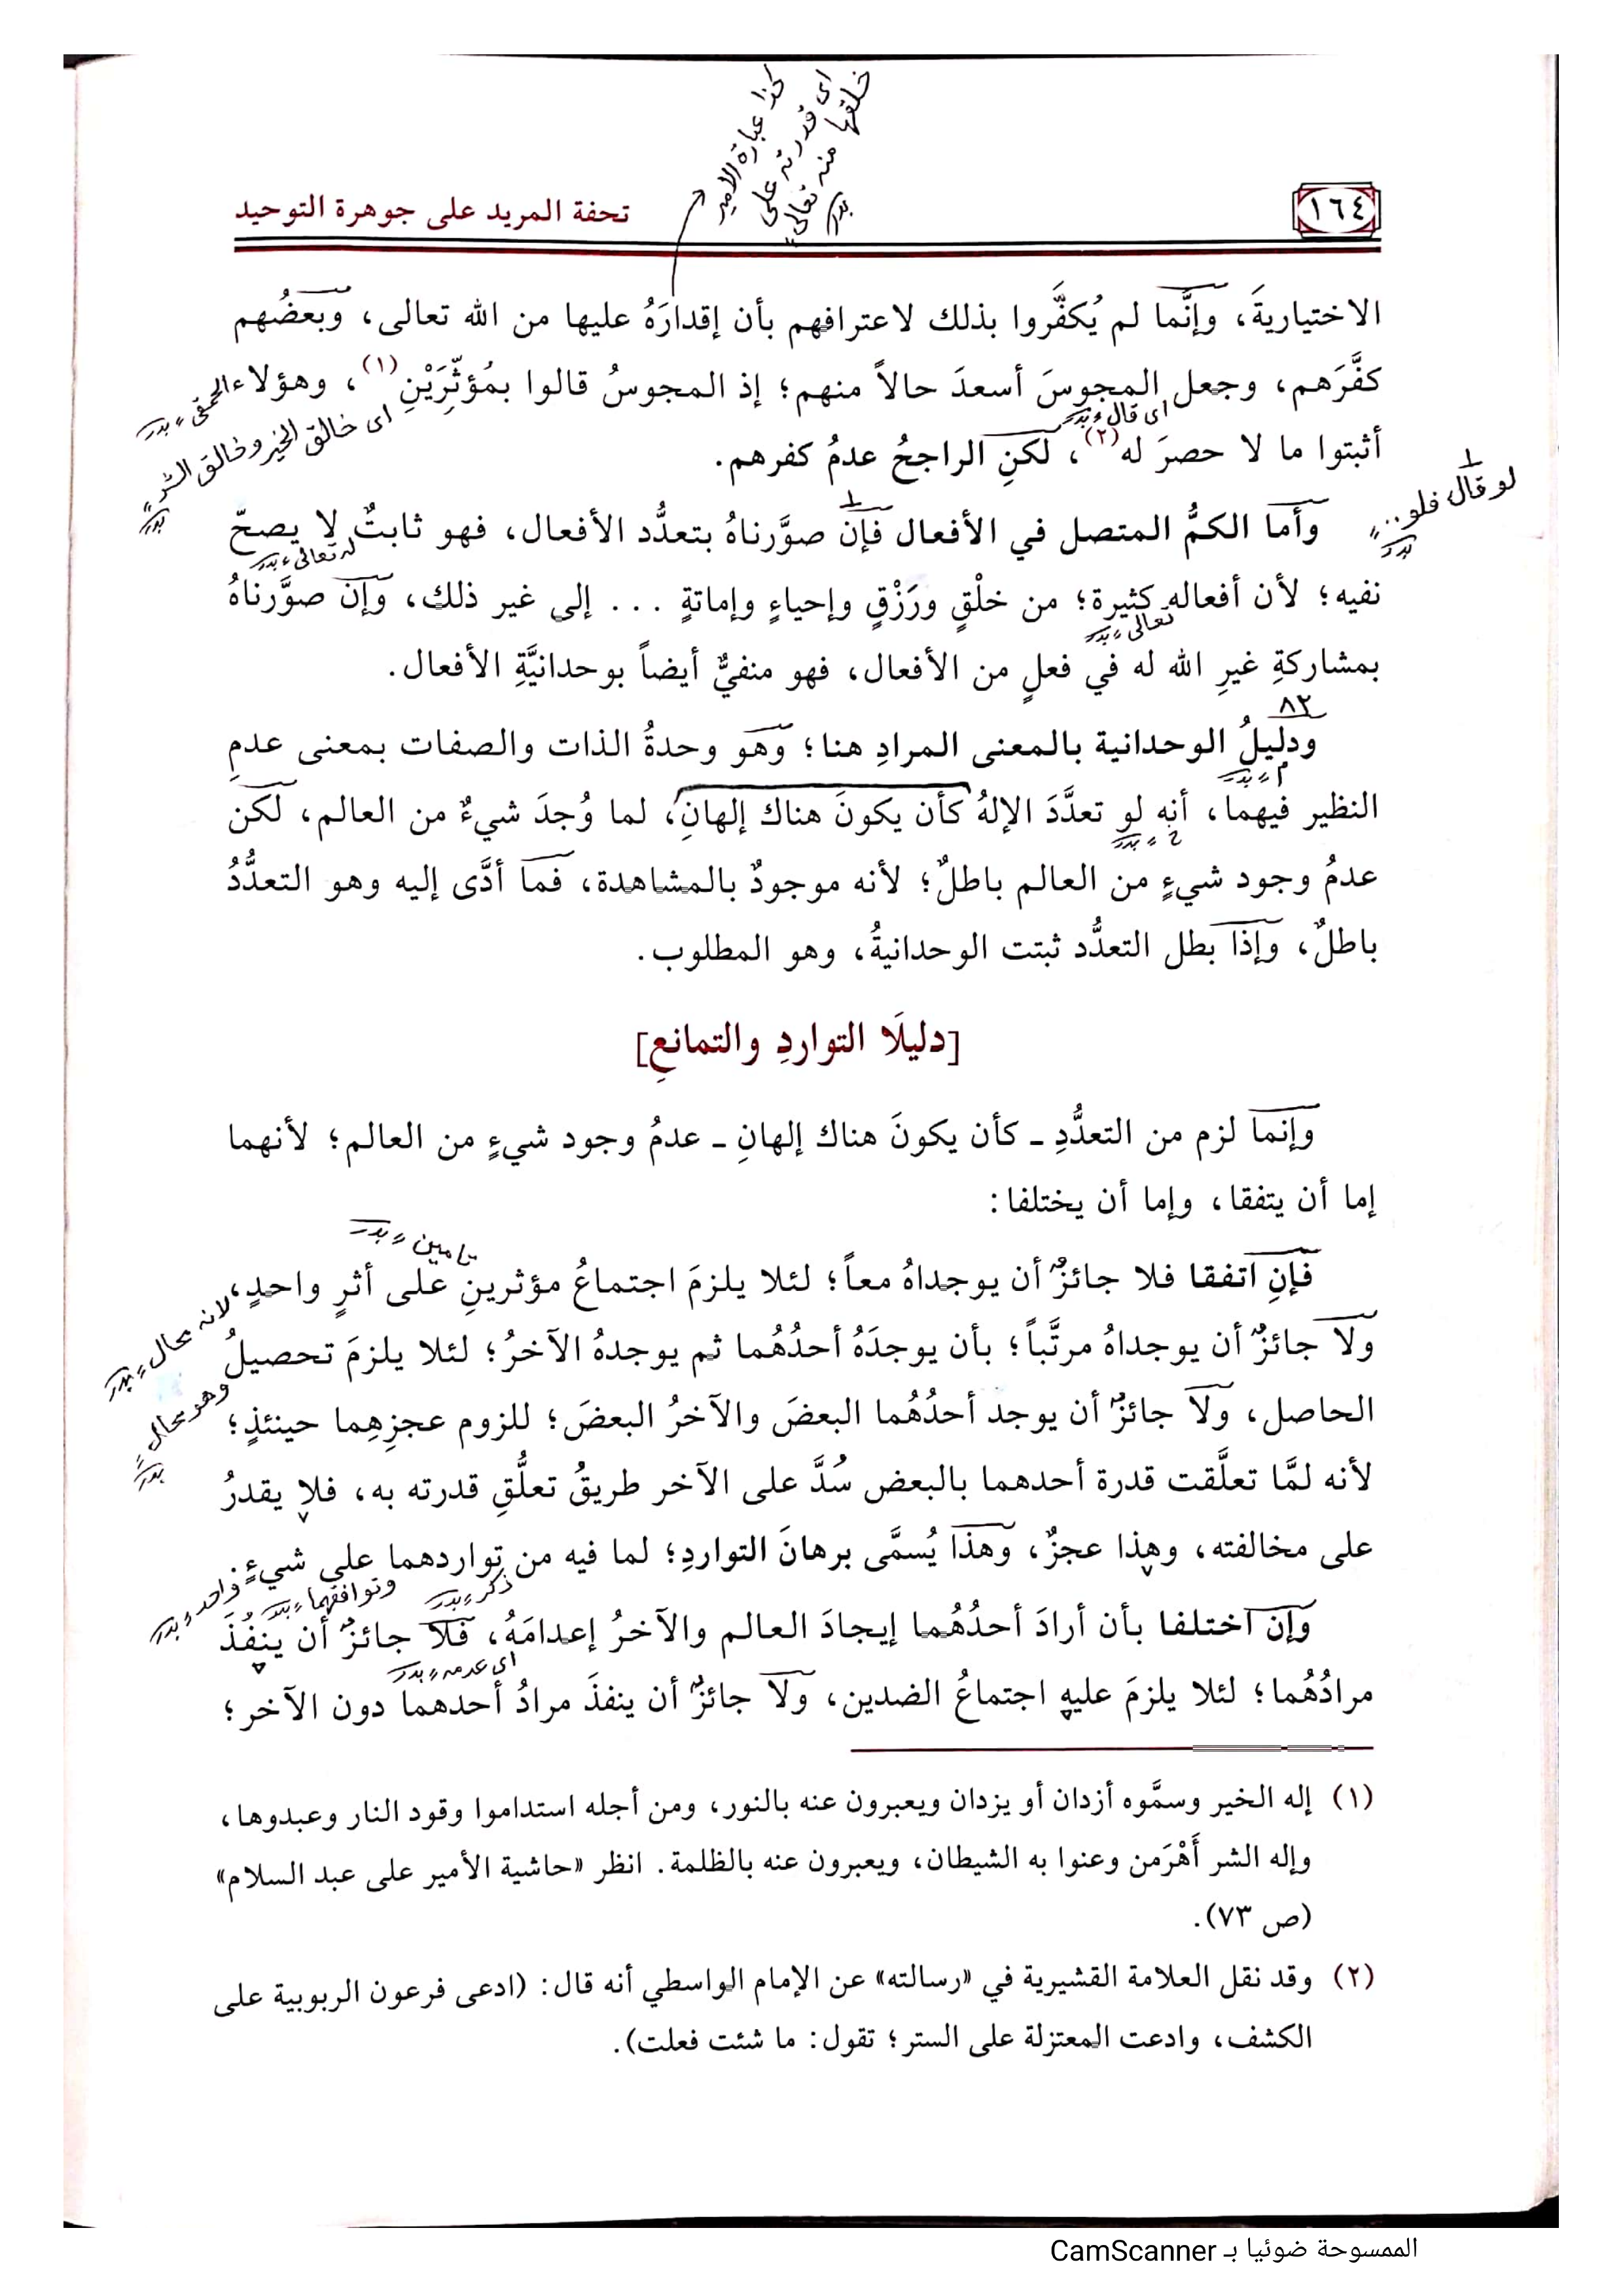 كذا عبارة الامير
اى قدرته على
خلقها منه تعالى
بدر
١٦٤
تحفة المريد على جوهرة التوحيد
الاختياريةَ، وإنَّما لم يُكفَّروا بذلك لاعترافهم بأن إقدارَهُ عليها من الله تعالى، وبعضُهم
كفَّرَهم، وجعل المجوسَ أسعدَ حالاً منهم؛ إذ المجوسُ قالوا بمُؤثِّرَيْنِ(١)، وهؤلاء
الحمقى بدر
اى قال بدر
اى خالق الخير وخالق الشر
بدر
أثبتوا ما لا حصرَ له(٢)، لكنِ الراجحُ عدمُ كفرهم.
لو قال فلو..
بدر
وأما الكمُّ المتصل في الأفعال فإن صوَّرناهُ بتعدُّد الأفعال، فهو ثابتٌ لا يصحّ
له تعالى بدر
نفيه؛ لأن أفعاله كثيرة؛ من خلْقٍ ورَزْقٍ وإحياءٍ وإماتةٍ ... إلى غير ذلك، وإن صوَّرناهُ
تعالى بدر
بمشاركةِ غيرِ الله له في فعلٍ من الأفعال، فهو منفيٌّ أيضاً بوحدانيَّةِ الأفعال.
٨٢
ودليلُ الوحدانية بالمعنى المرادِ هنا؛ وهو وحدةُ الذات والصفات بمعنى عدمِ
بدر
النظير فيهما، أنه لو تعدَّدَ الإلهُ كأن يكونَ هناك إلهانِ، لما وُجدَ شيءٌ من العالم، لكن
بدر
عدمُ وجود شيءٍ من العالم باطلٌ؛ لأنه موجودٌ بالمشاهدة، فما أدَّى إليه وهو التعدُّدُ
باطلٌ، وإذا بطل التعدُّد ثبتت الوحدانيةُ، وهو المطلوب.
[دليلَا التواردِ والتمانعِ]
وإنما لزم من التعدُّدِ ـ كأن يكونَ هناك إلهانِ ـ عدمُ وجود شيءٍ من العالم؛ لأنهما
إما أن يتفقا، وإما أن يختلفا:
تامين بدر
فإنِ اتفقا فلا جائزٌ أن يوجداهُ معاً؛ لئلا يلزمَ اجتماعُ مؤثرينِ على أثرٍ واحدٍ،
لانه محال بدر
ولا جائزٌ أن يوجداهُ مرتَّباً؛ بأن يوجدَهُ أحدُهُما ثم يوجدهُ الآخرُ؛ لئلا يلزمَ تحصيلُ
وهو محال
بدر
الحاصل، ولا جائزٌ أن يوجد أحدُهُما البعضَ والآخرُ البعضَ؛ للزوم عجزِهِما حينئذٍ؛
لأنه لمَّا تعلَّقت قدرة أحدهما بالبعض سُدَّ على الآخر طريقُ تعلُّقِ قدرته به، فلا يقدرُ
على مخالفته، وهذا عجزٌ، وهذا يُسمَّى برهانَ التواردِ؛ لما فيه من تواردهما على شيءٍ.
واحد بدر
وتوافقهما بدر
ذكر بدر
وإن اختلفا بأن أرادَ أحدُهُما إيجادَ العالم والآخرُ إعدامَهُ، فلا جائزٌ أن ينفُذَ
اى عدمه بدر
مرادُهُما؛ لئلا يلزمَ عليه اجتماعُ الضدين، ولا جائزٌ أن ينفذَ مرادُ أحدهما دون الآخر؛
(١) إله الخير وسمَّوه أزدان أو يزدان ويعبرون عنه بالنور، ومن أجله استداموا وقود النار وعبدوها،
وإله الشر أَهْرَمن وعنوا به الشيطان، ويعبرون عنه بالظلمة. انظر «حاشية الأمير على عبد السلام»
(ص ٧٣).
(٢) وقد نقل العلامة القشيرية في «رسالته» عن الإمام الواسطي أنه قال: (ادعى فرعون الربوبية على
الكشف، وادعت المعتزلة على الستر؛ تقول: ما شئت فعلت).
الممسوحة ضوئيا بـ CamScanner